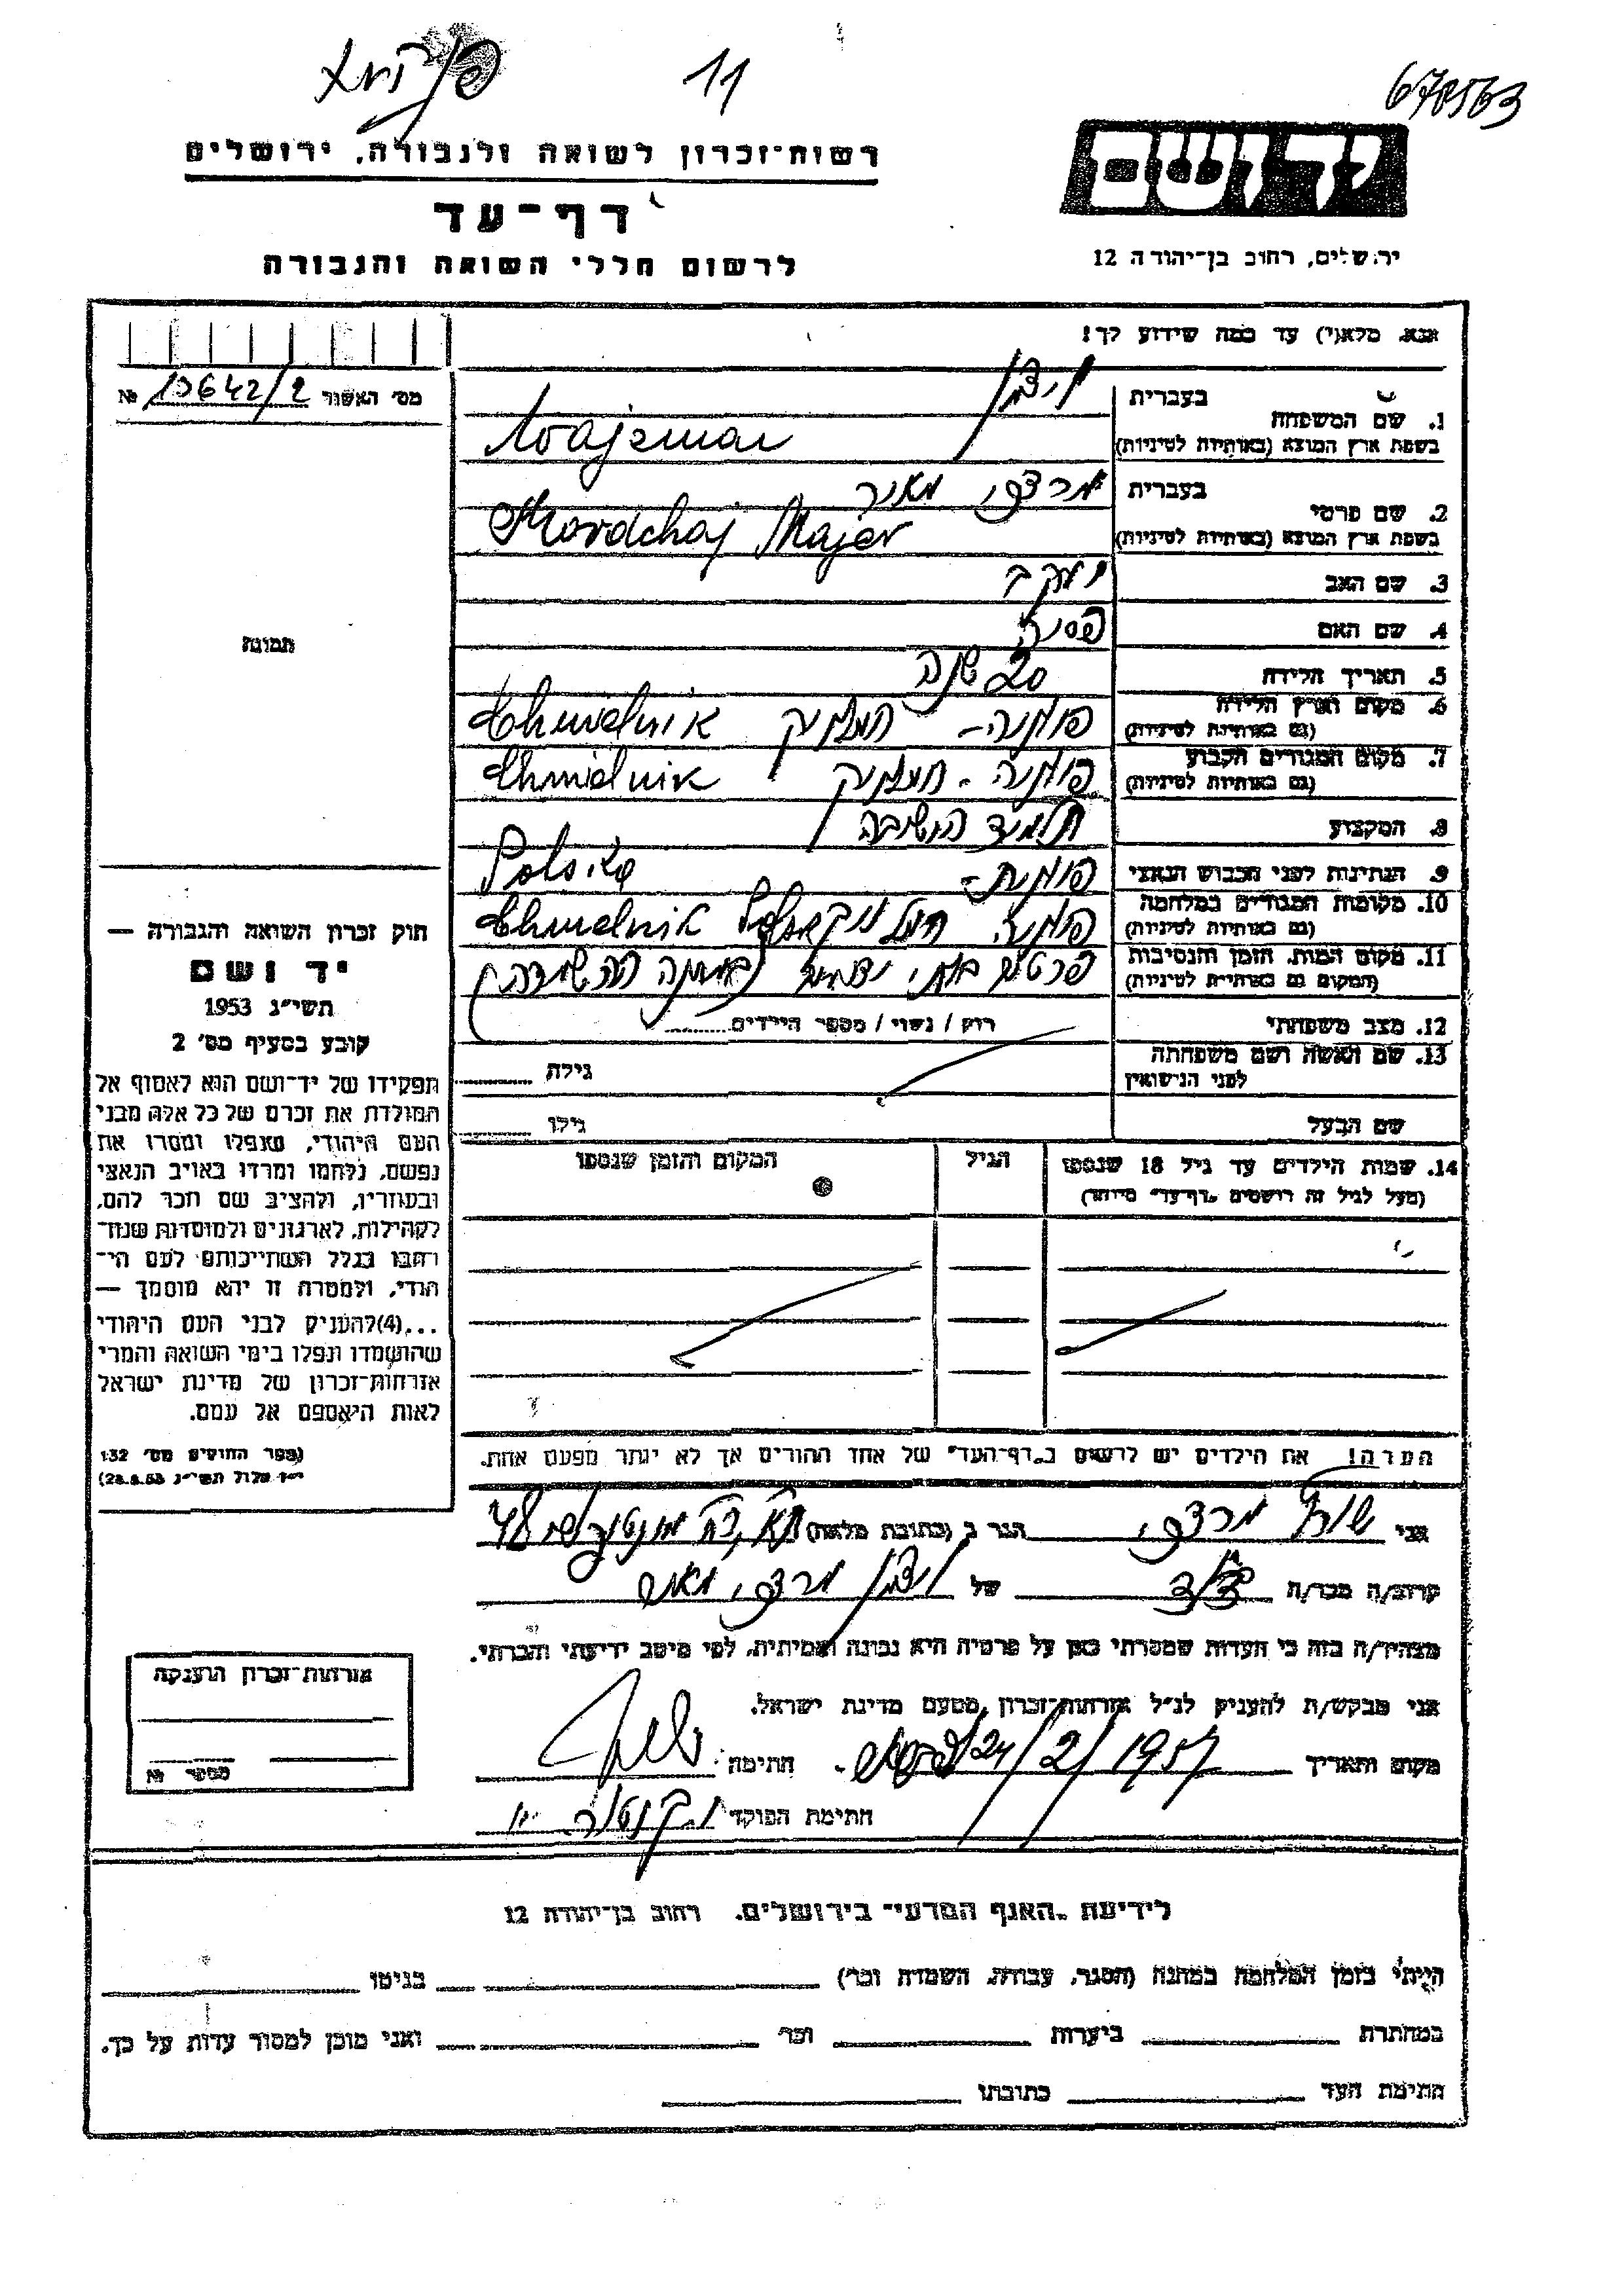 11
670563
רשות-זכרון לשואה ולגבורה, ירושלים
יד ושם
דף-עד
ירושלים, רחוב בן-יהודה 12
לרשום חללי השואה והגבורה
אנא, מלא(י) עד כמה שידוע לך!
מס' האשור 13642/2 №
1. שם המשפחה
בעברית ויצמן
בשפת ארץ המוצא (באותיות לטיניות) Wajzman
2. שם פרטי
בעברית מרדכי מאיר
בשפת ארץ המוצא (באותיות לטיניות) Mordchaj Majer
3. שם האב יעקב
4. שם האם
תמונה
5. תאריך הלידה 20 שנה
6. מקום וארץ הלידה (גם באותיות לטיניות) פולניה - חמלניק Chmielnik
7. מקום המגורים הקבוע (גם באותיות לטיניות) פולניה - חמלניק Chmielnik
8. המקצוע תלמיד הישיבה
9. הנתינות לפני הכבוש הנאצי פולנית - Polska
10. מקומות המגורים במלחמה (גם באותיות לטיניות) פולניה חמלניק Chmielnik Polska
11. מקום המות, הזמן והנסיבות (המקום גם באותיות לטיניות) פרטים בלתי ידועים (במחנה השמדה)
12. מצב משפחתי רווק / נשוי / מספר הילדים
13. שם האשה ושם משפחתה לפני הנישואין גילה
שם הבעל גילו
14. שמות הילדים עד גיל 18 שנספו
(מעל לגיל זה רושמים „דף-עד" מיוחד)
הגיל
המקום והזמן שנספו
חוק זכרון השואה והגבורה —
יד ושם
תשי"ג 1953
קובע בסעיף מס' 2
תפקידו של יד-ושם הוא לאסוף אל
המולדת את זכרם של כל אלה מבני
העם היהודי, שנפלו ומסרו את
נפשם, נלחמו ומרדו באויב הנאצי
ובעוזריו, ולהציב שם וזכר להם,
לקהילות, לארגונים ולמוסדות שנח-
רבו בגלל השתייכותם לעם הי-
הודי, ולמטרה זו יהא מוסמך —
...(4) להעניק לבני העם היהודי
שהושמדו ונפלו בימי השואה והמרי
אזרחות-זכרון של מדינת ישראל
לאות היאספם אל עמם.
(ספר החוקים מס' 132
י"ז אלול תשי"ג 28.8.53)
הערה! את הילדים יש לרשום ב„דף-העד" של אחד ההורים אך לא יותר מפעם אחת.
אני מרדכי הגר ב (כתובת מלאה)
קרוב/ה מכר/ה של ויצמן מרדכי מאיר
מצהיר/ה בזה כי העדות שמסרתי כאן על פרטיה היא נכונה ואמיתית, לפי מיטב ידיעתי והכרתי.
אני מבקש/ת להעניק לנ"ל אזרחות-זכרון מטעם מדינת ישראל.
מקום ותאריך 24/2/1957 חתימה
חתימת הפוקד
אזרחות-זכרון הוענקה
מספר №
לידיעת „האגף המדעי" בירושלים. רחוב בן-יהודה 12
הייתי בזמן המלחמה במחנה (הסגר, עבודה, השמדה וכו') בגיטו
במחתרת ביערות וכו' ואני מוכן למסור עדות על כך.
חתימת העד כתובתו